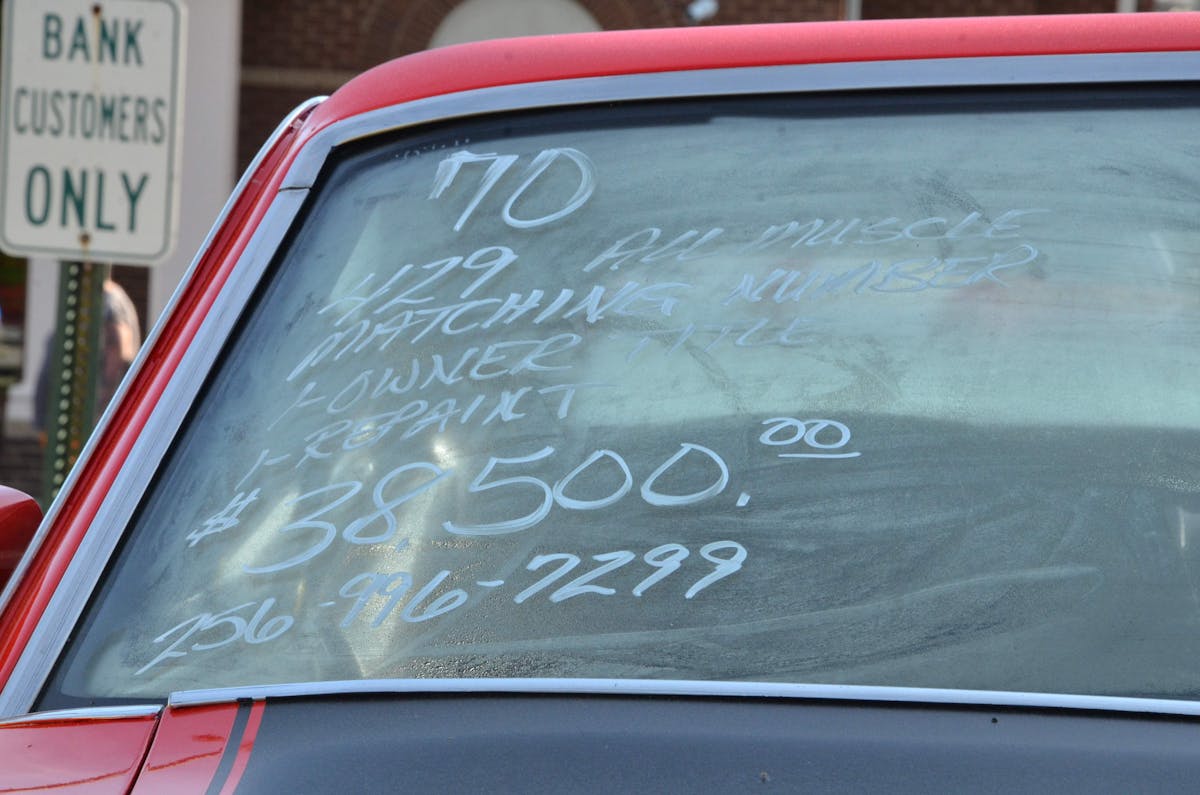 BANK
CUSTOMERS
ONLY
'70
429 ALL MUSCLE
MATCHING NUMBER
1-OWNER TITLE
1-REPAINT
$38,500.00
256-996-7299